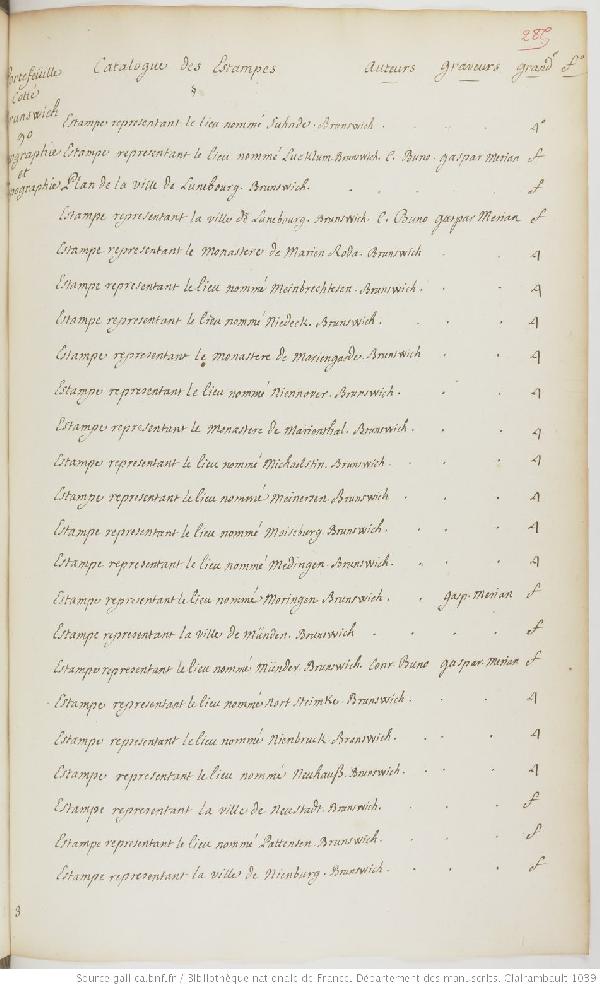 285
Portefeuille Catalogue des Estampes Auteurs Graveurs grand.r f.o
Cotté
Brunswick
90
et
Estampe representant le lieu nommé Suhnde. Brunswich. 4°
Estampe representant le lieu nommé Lucklum. Brunswich. C. Buno. gaspar Merian f
Plan de la ville de Lunebourg. Brunswich. f
Estampe representant la ville de Lunebourg. Brunswich. C. Buno gaspar Merian f
Estampe representant le Monastere de Marien Roda. Brunswich 4
Estampe representant le lieu nommé Meinbrechtesen. Brunswich. 4
Estampe representant le lieu nommé Niedeck. Brunswich. 4
Estampe representant le monastere de Mariengarde. Brunswich 4
Estampe representant le lieu nommé Niennover. Brunswich. 4
Estampe representant le Monastere de Marienthal. Brunswich. 4
Estampe representant le lieu nommé Michaelstin. Brunswich. 4
Estampe representant le lieu nommé Meinersen. Brunswich 4
Estampe representant le lieu nommé Moisburg. Brunswich. 4
Estampe representant le lieu nommé Medingen. Brunswich. 4
Estampe representant le lieu nommé Moringen. Brunswich. gasp. Merian f
Estampe representant la ville de Münden. Brunswich f
Estampe representant le lieu nommé Münder. Brunswich. Conr. Buno gaspar Merian f
Estampe representant le lieu nommé Nort Steimke. Brunswich. 4
Estampe representant le lieu nommé Nienbruck. Brunswich. 4
Estampe representant le lieu nommé Neuhauß. Brunswich. 4
Estampe representant la ville de Neustadt. Brunswich. f
Estampe representant le lieu nommé Pattensen. Brunswich. f
Estampe representant la ville de Nienburg. Brunswich. f
Source gallica.bnf.fr / Bibliothèque nationale de France. Département des manuscrits. Clairambault 1039